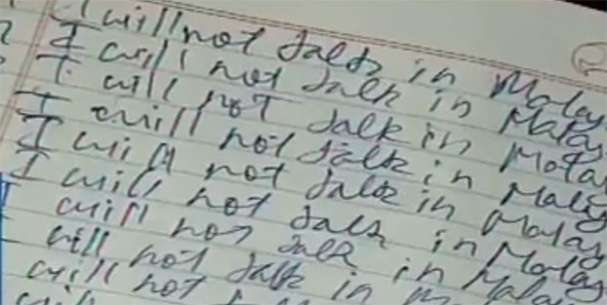 I will not talk in Malay
I will not talk in Malay
I will not talk in Malay
I will not talk in Malay
I will not talk in Malay
I will not talk in Malay
I will not talk in Malay
will not talk in
will not